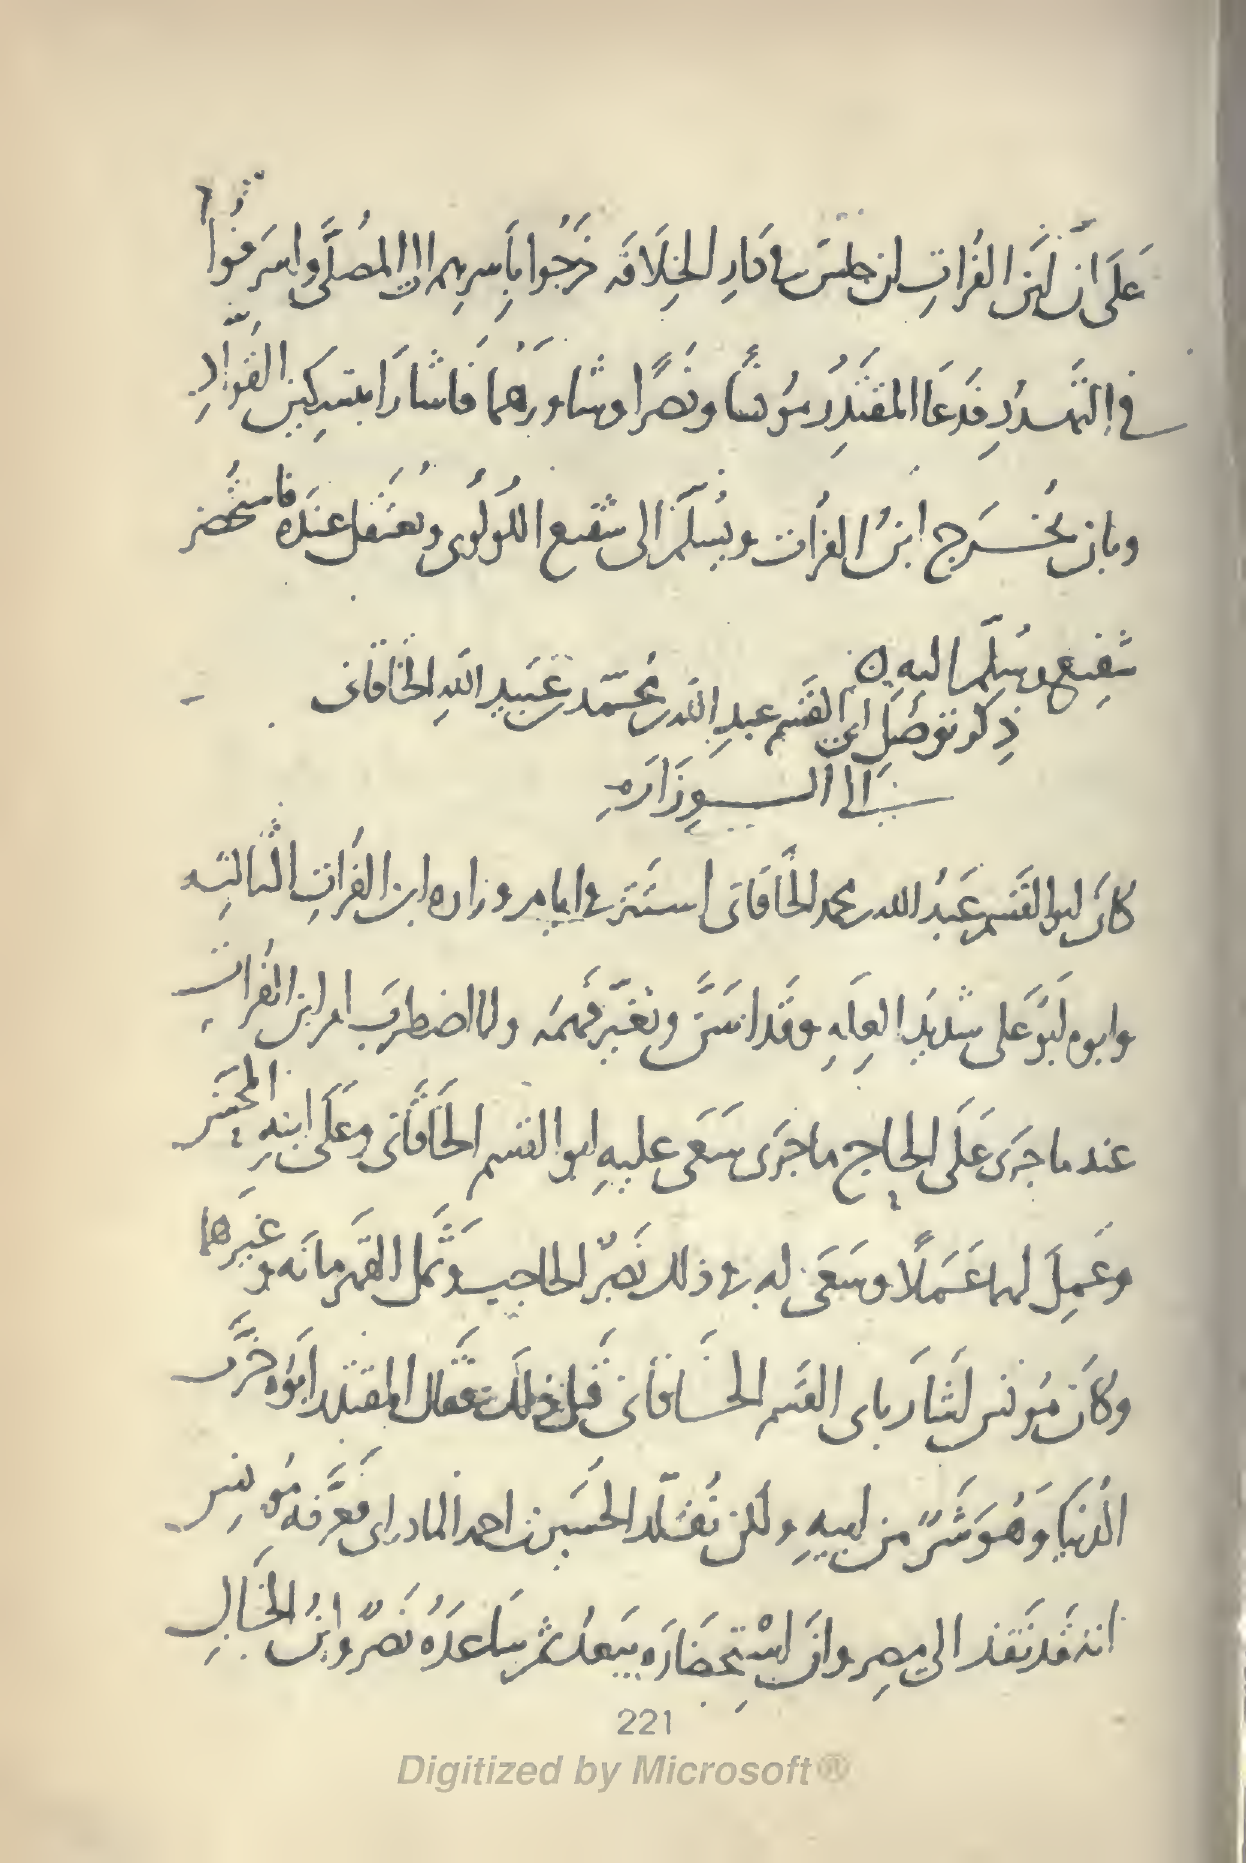 عَلَى ان ابنَ الفُراتِ ان حبسَ في دَارِ الخِلَافَه خَرَجُوا بِأَسرِهِم الى المُصلَّى واسرَفُوا
في التَّهدُدِ فَدَعَا المقتَدِرُ مُونسًا ونَصرًا وشاورَهُما فَاشارَا بتسكِين القُوّادِ
وبان يُخرَج ابنُ الفُرات ويُسلَّم الى شفيع اللُولُوى ويُعتَقل عندَه فاستُحضر
شفِيع وسُلِّم اليهِ ه
ذِكر توصُّل ابى القَسم عبدِ اللهِ بن مُحمَّد بن عُبَيدِ اللهِ الخَاقَانى
الى الوِزَارَهِ
كانَ ابو القَسم عَبدُ الله بن محمد الخَاقَانى استَتَر في ايام وزاره ابن الفُراتِ الثالثِه
وابوه ابُو عَلى شديدُ العِلهِ وقَد اسَنَّ وتَغيّر فَهمُه ولما اضطربَ امر ابن الفُراتِ
عند ما جرَى عَلَى الحاج ما جَرَى سَعَى عليهِ ابو القسم الخَاقَانى وعَلَى ابنِهِ المُحَسِّن
وعَمِلَ لهما عَمَلًا وسَعَى له في ذلك نَصرٌ الحاجب وثَمَل القَهرمانَه وغيرَهما
وكانَ مُونس اشَارَ بابى القَسم الخَاقَانى قَبل ذلك فقال المقتدر ابُوه خَرَّب
الدُنيَا وَهُوَ شَرٌّ من ابيهِ ولكن نُقَلّد الحُسَين بن احمد المادراى فعَرَّفه مُونِس
انهُ قَد نَفَذ الى مِصر وانَ اسْتِحضَارَه يبعُد ثم ساعَدَهُ نَصرٌ وابنُ الخَالِ
221
Digitized by Microsoft®